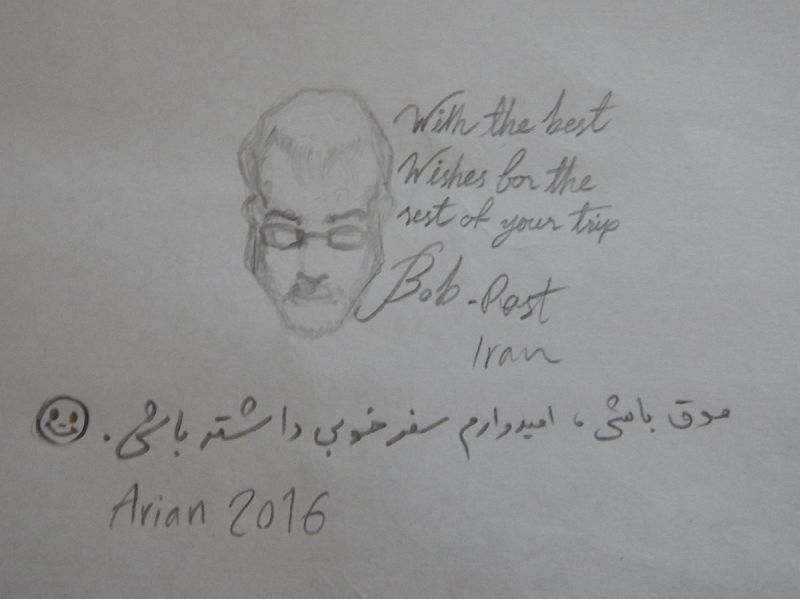 With the best
Wishes for the
rest of your trip
Bob - Rast
Iran
موفق باشی ، امیدوارم سفر خوبی داشته باشی .
Arian 2016